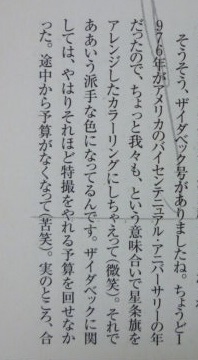 そうそう、ザイダベック号がありましたね。ちょうど1
976年がアメリカのバイセンテニュアル・アニバーサリーの年
だったので、ちょっと我々も、という意味合いで星条旗を
アレンジしたカラーリングにしちゃえって(微笑)。それで
ああいう派手な色になってるんです。ザイダベックに関
しては、やはりそれほど特撮をやれる予算を回せなか
った。途中から予算がなくなって(苦笑)。実のところ、合